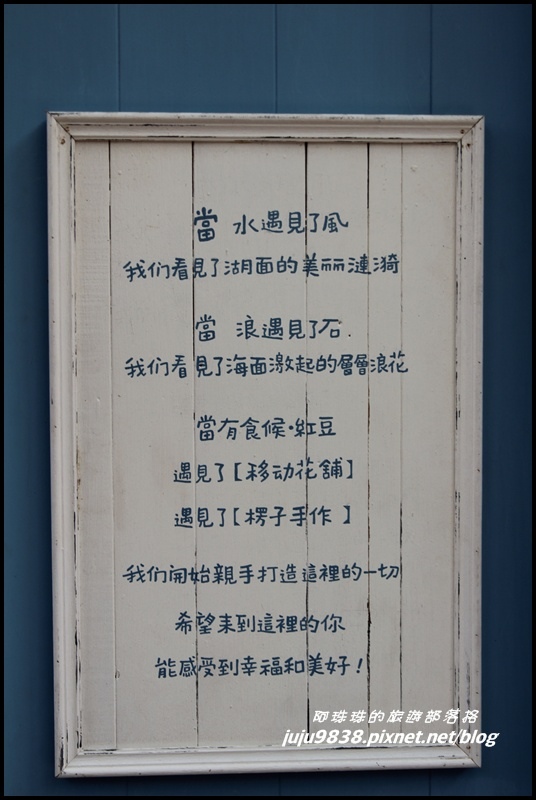 當 水遇見了風
我们看見了湖面的美丽漣漪
當 浪遇見了石.
我们看見了海面激起的層層浪花
當有食候·紅豆
遇見了[移动花舖]
遇見了[楞子手作]
我们開始親手打造這裡的一切
希望来到這裡的你
能感受到幸福和美好!
阿珠珠的旅遊部落格
juju9838.pixnet.net/blog